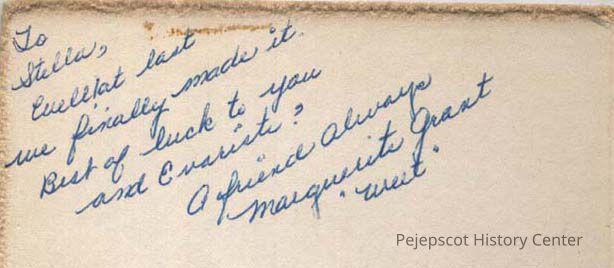 To
Stella,
Well! at last
we finally made it.
Best of luck to you
and Evariste?
A friend Always
Marguerite Grant
"Weet"
Pejepscot History Center